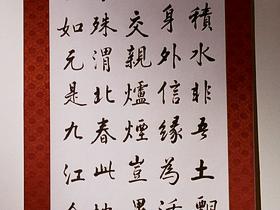 積水非吾土飄
身外信緣為活
交親爐煙豈異
殊渭北春此地
如元是九江